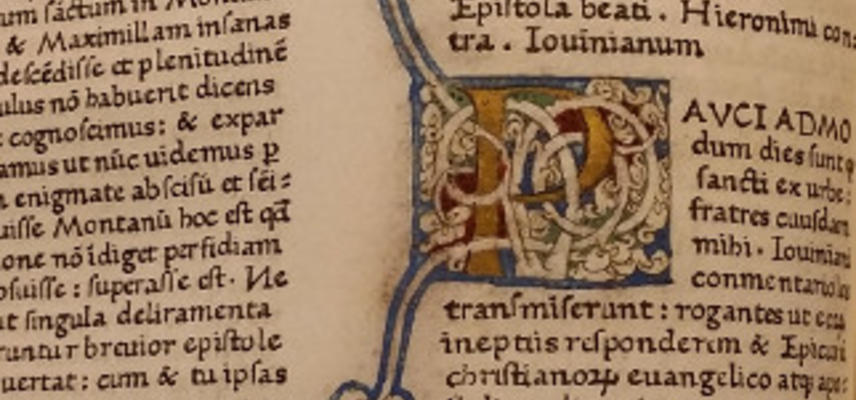 um factum in Montan
& Maximillam insanas
descēdisse et plenitudinē
ulus nō habuerit dicens
cognoscimus: & expar
amus ut nūc uidemus ꝑ
enigmate abscisū et sēi:
uisse Montanū hoc est qđ
one nō īdiget perfidiam
osuisse: superasse est. Ne
ut singula deliramenta
runtur breuior epistole
uertat: cum & tu ipsas
Epistola beati. Hieronimi con:
tra. Iouinianum
PAVCI ADMO
dum dies sunt
sancti ex urbe:
fratres cuiusdam
mihi. Iouiniani
conmentariolos
transmiserunt: rogantes ut eorū
ineptiis responderem & Epicuri
christianoꝝ euangelico atqꝫ apo: